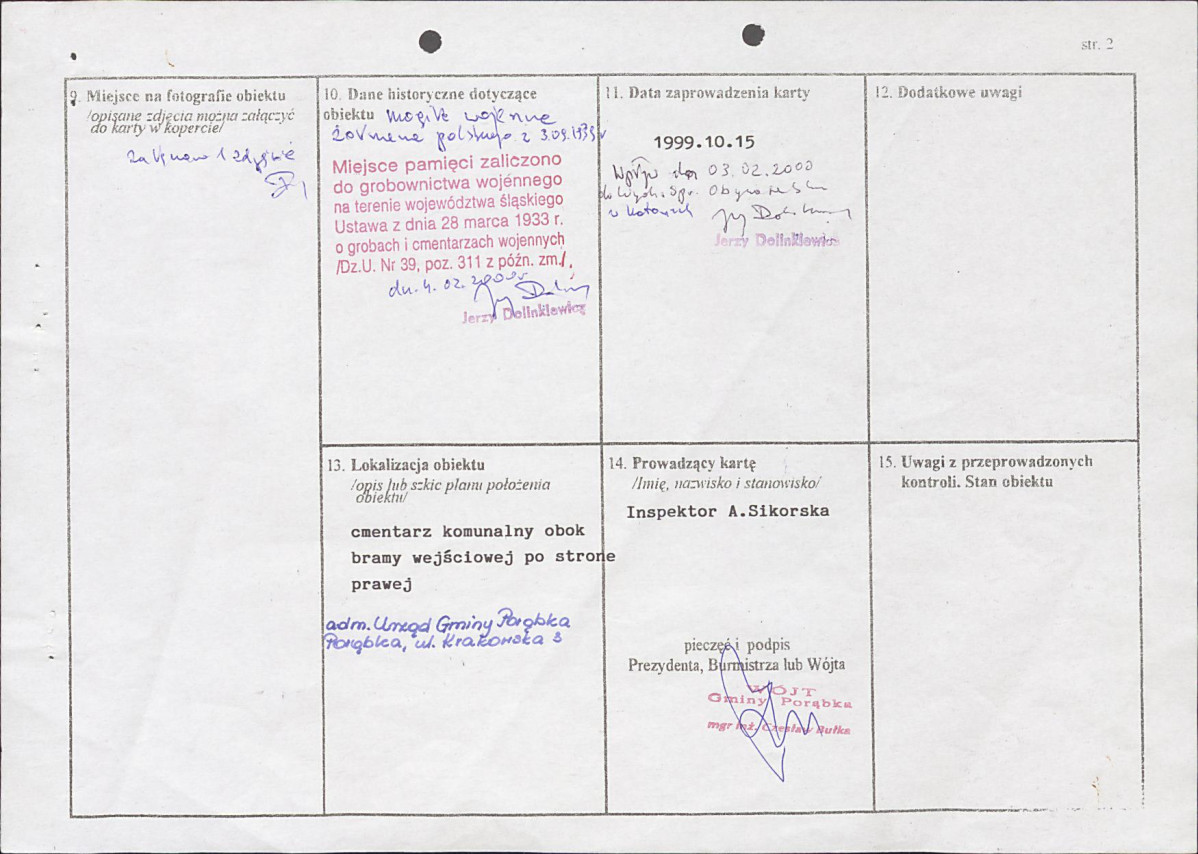 str. 2
9. Miejsce na fotografie obiektu
/opisane zdjęcia można załączyć
do karty w kopercie/
1 zdjęcie
10. Dane historyczne dotyczące
obiektu mogiła wojenna
żołnierza polskiego z 3.09.1939 r
Miejsce pamięci zaliczono
do grobownictwa wojénnego
na terenie województwa śląskiego
Ustawa z dnia 28 marca 1933 r.
o grobach i cmentarzach wojennych
/Dz.U. Nr 39, poz. 311 z późn. zm./,
dn. 4. 02. 2000r
Jerzy Dolinkiewicz
11. Data zaprowadzenia karty
1999.10.15
Wpłyn. dn 03.02.2000
do Wydz. Spr. Obywatelsk
w Katowicach
Jerzy Dolinkiewicz
12. Dodatkowe uwagi
13. Lokalizacja obiektu
/opis lub szkic planu położenia
obiektu/
cmentarz komunalny obok
bramy wejściowej po strone
prawej
adm. Urząd Gminy Porąbka
Porąbka, ul. Krakowska 3
14. Prowadzący kartę
/Imię, nazwisko i stanowisko/
Inspektor A.Sikorska
pieczęć i podpis
Prezydenta, Burmistrza lub Wójta
WÓJT
Gminy Porąbka
mgr inż. Czesław Bułka
15. Uwagi z przeprowadzonych
kontroli. Stan obiektu